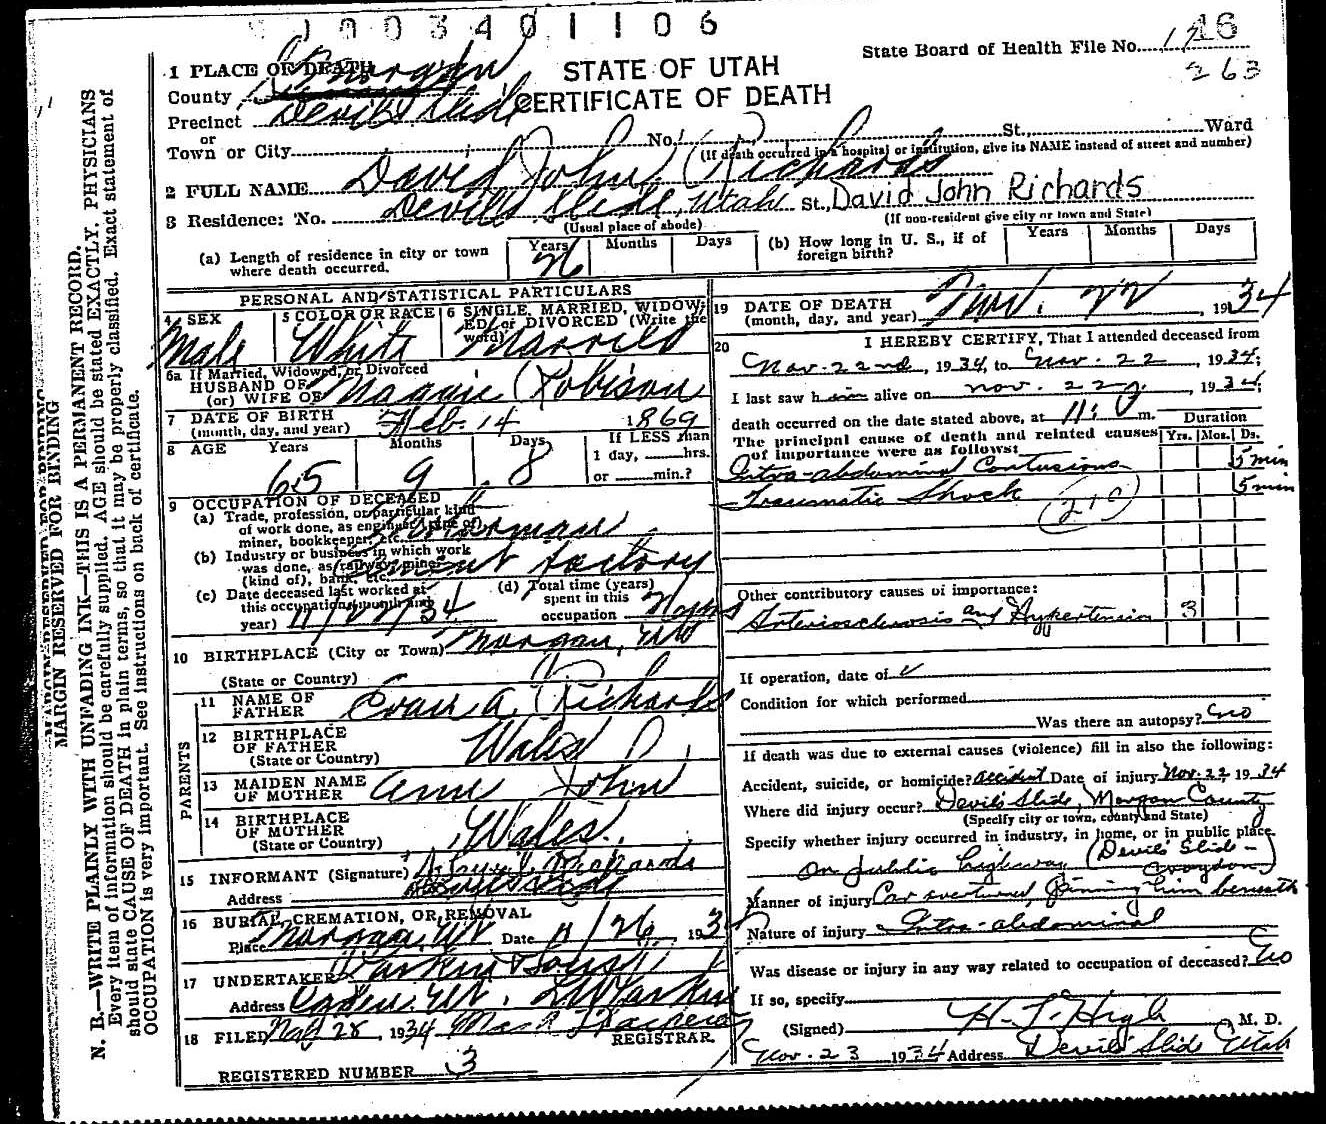 J003401106
State Board of Health File No. 1716
263
STATE OF UTAH
CERTIFICATE OF DEATH
1 PLACE OF DEATH
County Morgan
Precinct Devils Slide
or
Town or City No. St., Ward
(If death occurred in a hospital or institution, give its NAME instead of street and number)
2 FULL NAME David John Richards
3 Residence: No. Devils Slide, Utah St., David John Richards
(Usual place of abode) (If non-resident give city or town and State)
(a) Length of residence in city or town where death occurred. Years 26 Months Days
(b) How long in U. S., if of foreign birth? Years Months Days
PERSONAL AND STATISTICAL PARTICULARS
4 SEX Male
5 COLOR OR RACE White
6 SINGLE, MARRIED, WIDOWED, or DIVORCED (Write the word) Married
6a If Married, Widowed, or Divorced
HUSBAND OF
(or) WIFE OF Maggie Robison
7 DATE OF BIRTH
(month, day, and year) Feb. 14 1869
8 AGE Years 65 Months 9 Days 8
If LESS than
1 day, hrs.
or min.?
9 OCCUPATION OF DECEASED
(a) Trade, profession, or particular kind
of work done, as engineer, type of
miner, bookkeeper, etc.
(b) Industry or business in which work
was done, as railway, mine
(kind of), bank, etc. Cement factory
(c) Date deceased last worked at
this occupation (month and
year) 11/22/34
(d) Total time (years)
spent in this
occupation
10 BIRTHPLACE (City or Town) Morgan, Ut
(State or Country)
PARENTS
11 NAME OF
FATHER Evan A. Richards
12 BIRTHPLACE
OF FATHER Wales
(State or Country)
13 MAIDEN NAME
OF MOTHER Ann John
14 BIRTHPLACE
OF MOTHER Wales.
(State or Country)
15 INFORMANT (Signature) Richards
Address Devils Slide
16 BURIAL, CREMATION, OR REMOVAL
Place Morgan, Ut Date 11/26, 1934
17 UNDERTAKER Larkin & Sons
Address Ogden. Ut.
18 FILED Nov 28, 1934
REGISTRAR.
REGISTERED NUMBER 3
19 DATE OF DEATH
(month, day, and year) Nov. 22, 1934
20 I HEREBY CERTIFY, That I attended deceased from
Nov. 22nd, 1934, to Nov. 22, 1934;
I last saw him alive on Nov. 22, 1934;
death occurred on the date stated above, at 11: m.
The principal cause of death and related causes
of importance were as follows: Duration Yrs. Mos. Ds.
Intra-abdominal Contusions 5 min
Traumatic Shock 5 min
(210)
Other contributory causes of importance:
Arteriosclerosis and Hypertension 3
If operation, date of
Condition for which performed
Was there an autopsy? No
If death was due to external causes (violence) fill in also the following:
Accident, suicide, or homicide? accident Date of injury Nov. 22, 1934
Where did injury occur? Devil's Slide, Morgan County
(Specify city or town, county and State)
Specify whether injury occurred in industry, in home, or in public place.
On public highway (Devils Slide - Croydon)
Manner of injury Car overturned, pinning him beneath
Nature of injury Intra-abdominal
Was disease or injury in any way related to occupation of deceased? No
If so, specify
(Signed) H. T. High, M. D.
Nov. 23 1934 Address Devils Slide Utah
MARGIN RESERVED FOR BINDING
N. B.—WRITE PLAINLY WITH UNFADING INK—THIS IS A PERMANENT RECORD.
Every item of information should be carefully supplied. AGE should be stated EXACTLY. PHYSICIANS
should state CAUSE OF DEATH in plain terms, so that it may be properly classified. Exact statement of
OCCUPATION is very important. See instructions on back of certificate.